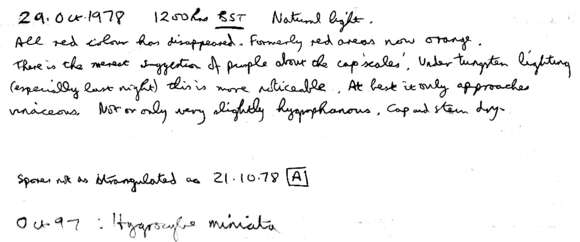 29.Oct.1978 1200hrs BST Natural light.
All red colour has disappeared. Formerly red areas now orange.
There is the merest suggestion of purple about the cap 'scales'. Under tungsten lighting
(especially last night) this is more noticeable. At best it only approaches
vinaceous. Not or only very slightly hygrophanous. Cap and stem dry.
Spores not as strangulated as 21.10.78 A
Oct 97 : Hygrocybe miniata